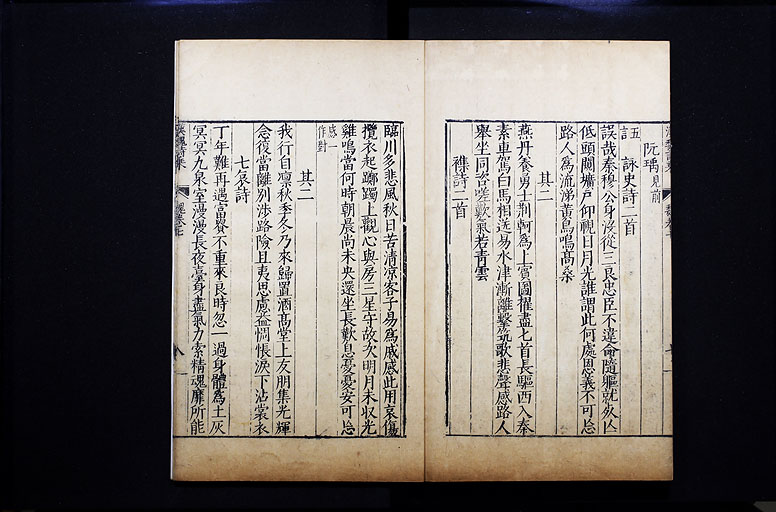 阮瑀見前
五言 詠史詩二首
誤哉秦穆公身沒從三良忠臣不違命隨軀就死亡
低頭闚壙戶仰視日月光誰謂此何處恩義不可忘
路人為流涕黃鳥鳴高桑
其二
燕丹養勇士荊軻為上賓圖擢盡匕首長驅西入秦
素車駕白馬相送易水津漸離擊筑歌悲聲感路人
舉坐同咨嗟歎氣若青雲
襍詩二首
臨川多悲風秋日苦清涼客子易為戚感此用哀傷
攬衣起躑躅上觀心與房三星守故次明月未収光
雞鳴當何時朝晨尚未央還坐長歎息憂憂安可忘
感一作對
其二
我行自凜秋季冬乃來歸置酒高堂上友朋集光輝
念復當離別涉路險且夷思慮益惆悵淚下沾裳衣
七哀詩
丁年難再遇富貴不重來良時忽一過身體為土灰
冥冥九泉室漫漫長夜臺身盡氣力索精魂靡所能